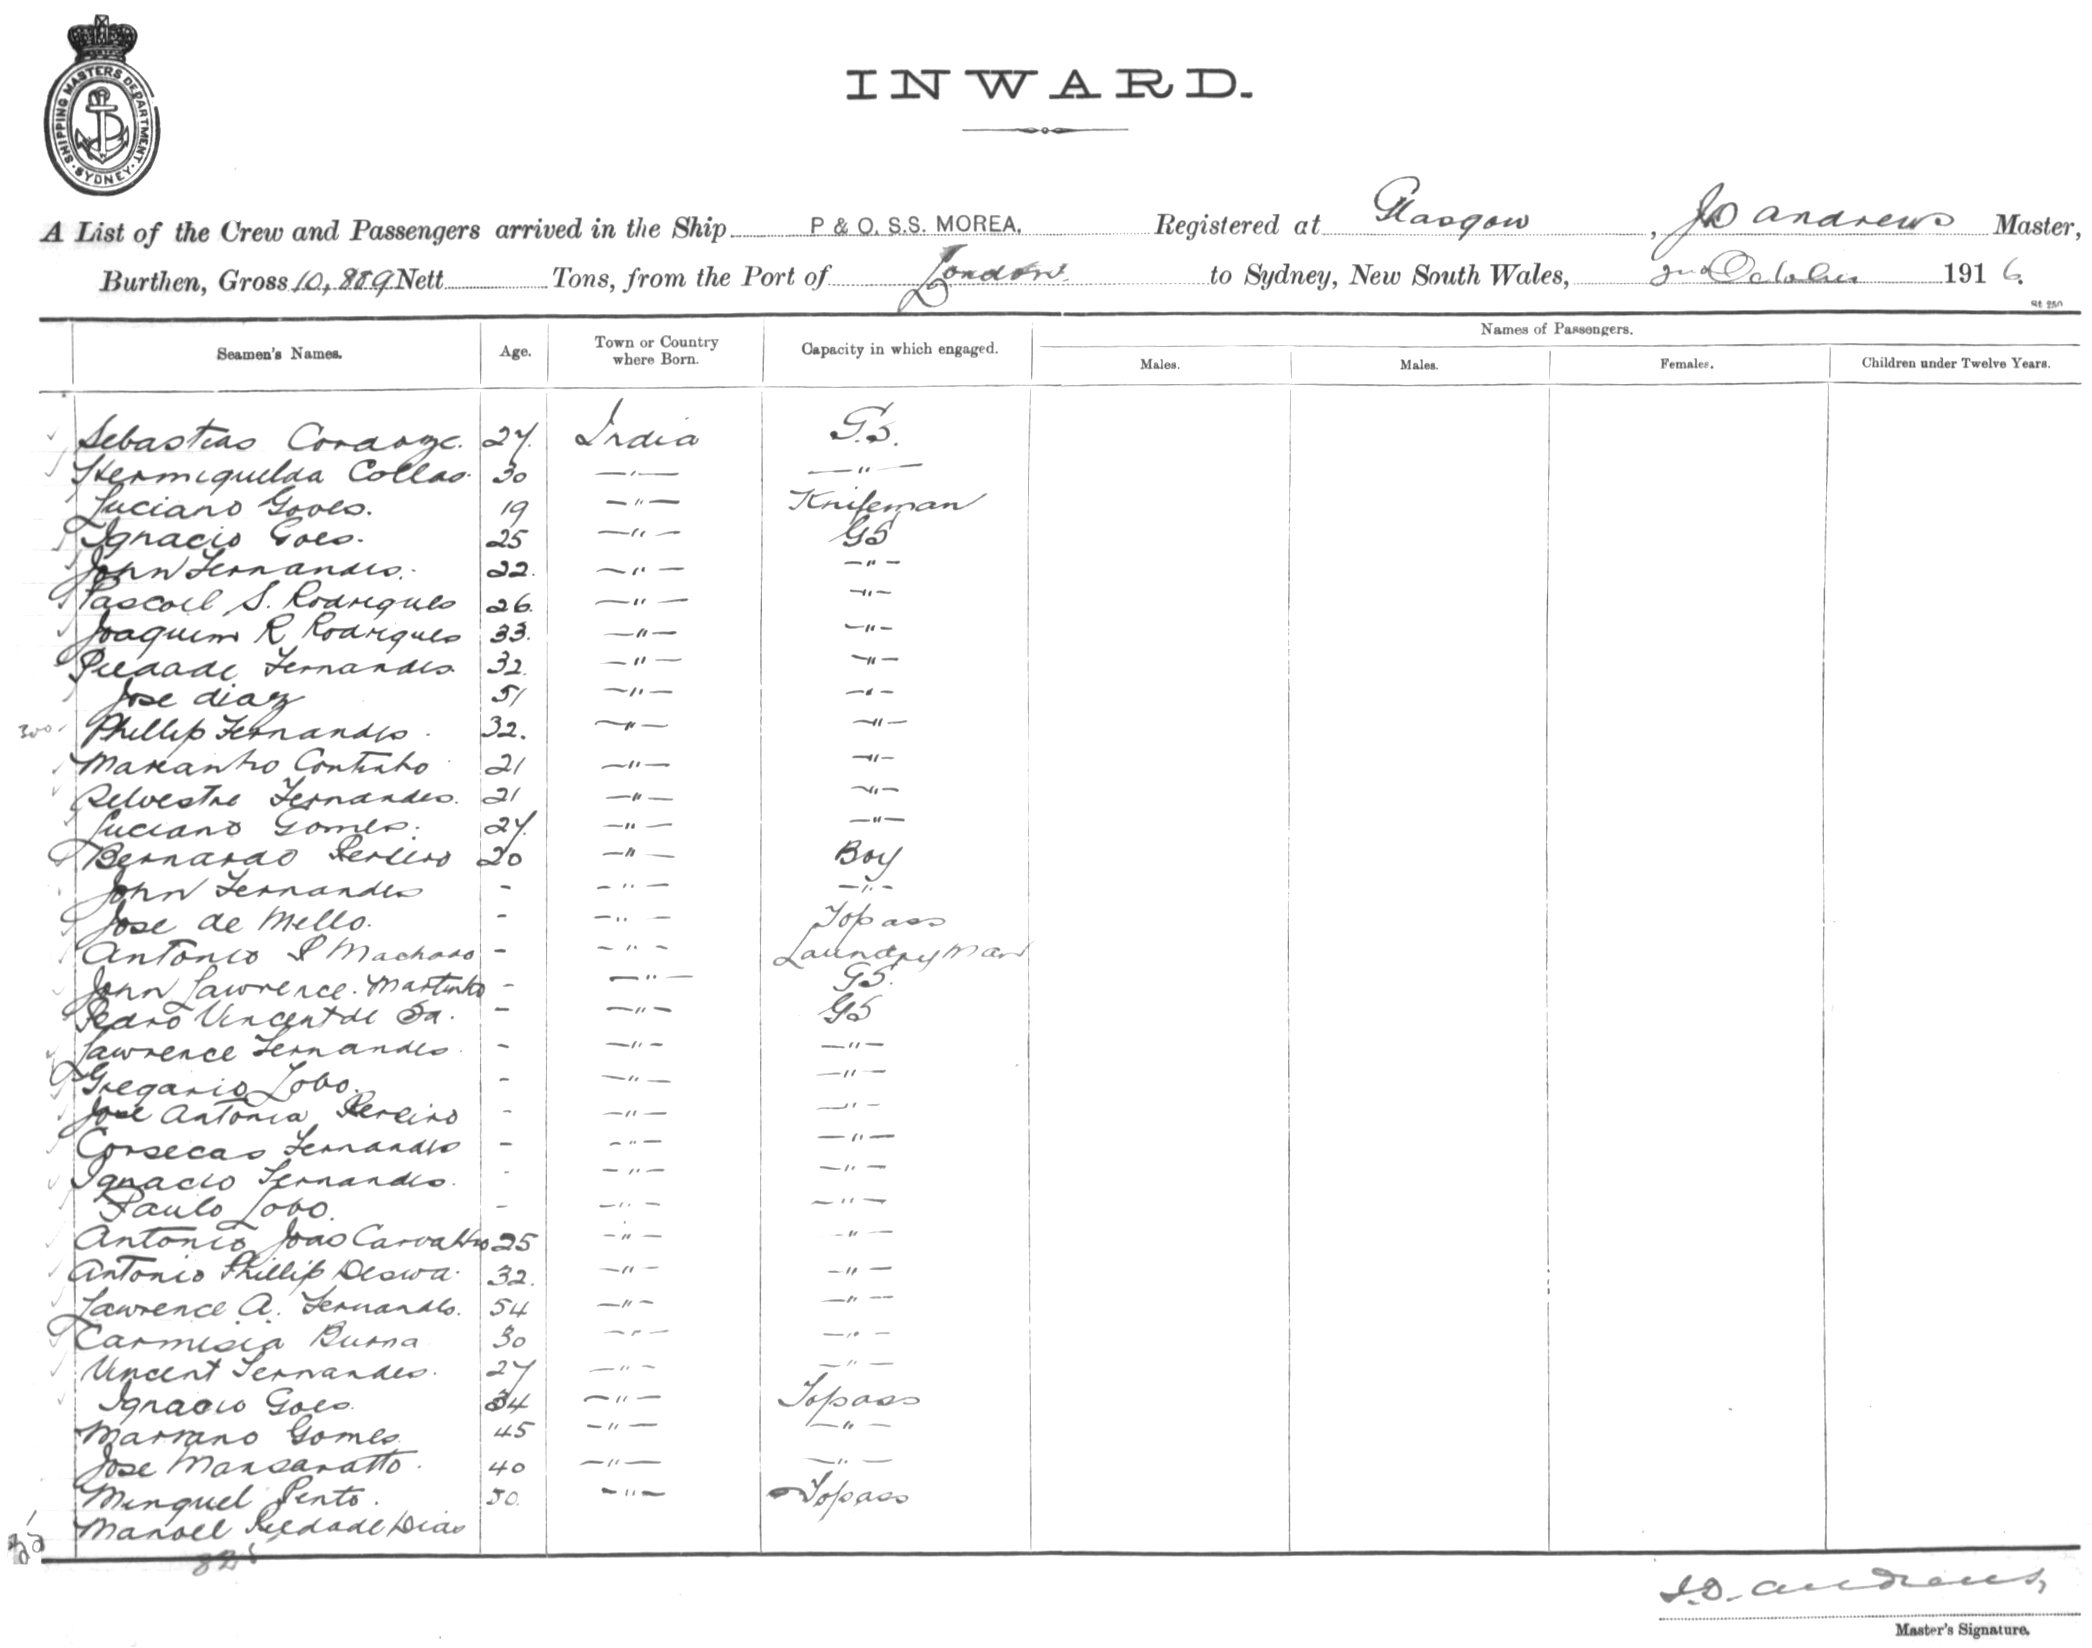 SHIPPING MASTERS DEPARTMENT. SYDNEY
INWARD.
A List of the Crew and Passengers arrived in the Ship P & O. S.S. MOREA, Registered at Glasgow, JD Andrews Master,
Burthen, Gross 10,889 Nett Tons, from the Port of London to Sydney, New South Wales, 2nd October 1916.
Seamen's Names. Age. Town or Country where Born. Capacity in which engaged. Names of Passengers.
Males. Males. Females. Children under Twelve Years.
Sebastiao 27. India G.S.
Hermiquelda Collao. 30 —"— —"—
Luciano Gooes. 19 —"— Knifeman
Ignacio Goes. 25 —"— GS
John Fernandes. 22. —"— —"—
Pascoel S. Rodrigues 26. —"— —"—
Joaquim R Rodrigues 33. —"— —"—
Piedade Fernandes 32. —"— —"—
Jose diaz 51 —"— —"—
300 Phillip Fernandes. 32. —"— —"—
Continho 21 —"— —"—
Selvestre Fernandes. 21 —"— —"—
Luciano Gomes. 27. —"— —"—
Bernardo Pereiro 20 —"— Boy
John Fernandes - —"— —"—
Jose de Mello. - —"— Topass
Antonio P Machado - —"— Laundryman
John Lawrence. Martinho - —"— GS.
Pedro Vincent de Sa. - —"— GS
Lawrence Fernandes. - —"— —"—
Gregario Lobo. - —"— —"—
Jose Antonia Pereiro - —"— —"—
Corsecao Fernandes - —"— —"—
Ignacio Fernandes. - —"— —"—
Paulo Lobo. - —"— —"—
Antonio Joao Carvalho 25 —"— —"—
Antonio Phillip Deswa. 32. —"— —"—
Lawrence A. Fernandes. 54 —"— —"—
Carmisia Burna 30 —"— —"—
Vincent Fernandes. 27 —"— —"—
Ignacio Goes. 34 —"— Topass
Marrano Gomes. 45 —"— —"—
Jose Mansaratto. 40 —"— —"—
Minguel Pento. 50. —"— Topass
Manoel Piedade Dias
J.D. Andrews,
Master's Signature.